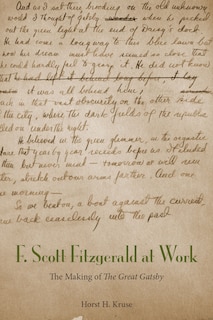 And as I sat there brooding on the old unknown
world I thought of Gatsby when he picked
out the green light at the end of Daisy's dock
He had come a long way to this blue lawn but
now his dream must have seemed so close that
he could hardly fail to grasp it. He did not know
that he had left it behind long before,
it was all behind him,
back in that vast obscurity on the other side
the city, where the dark fields of the republic
rolled on under the night.
He believed in the green glimmer, in the orgastic
ture that year by year recedes before us. It eluded
then but never mind — tomorrow we will run
ter, stretch out our arms farther. And one
ne morning —
So we beat on, a boat against the current,
rne back ceaselessly into the past
F. Scott Fitzgerald at Work
The Making of The Great Gatsby
Horst H. Kruse